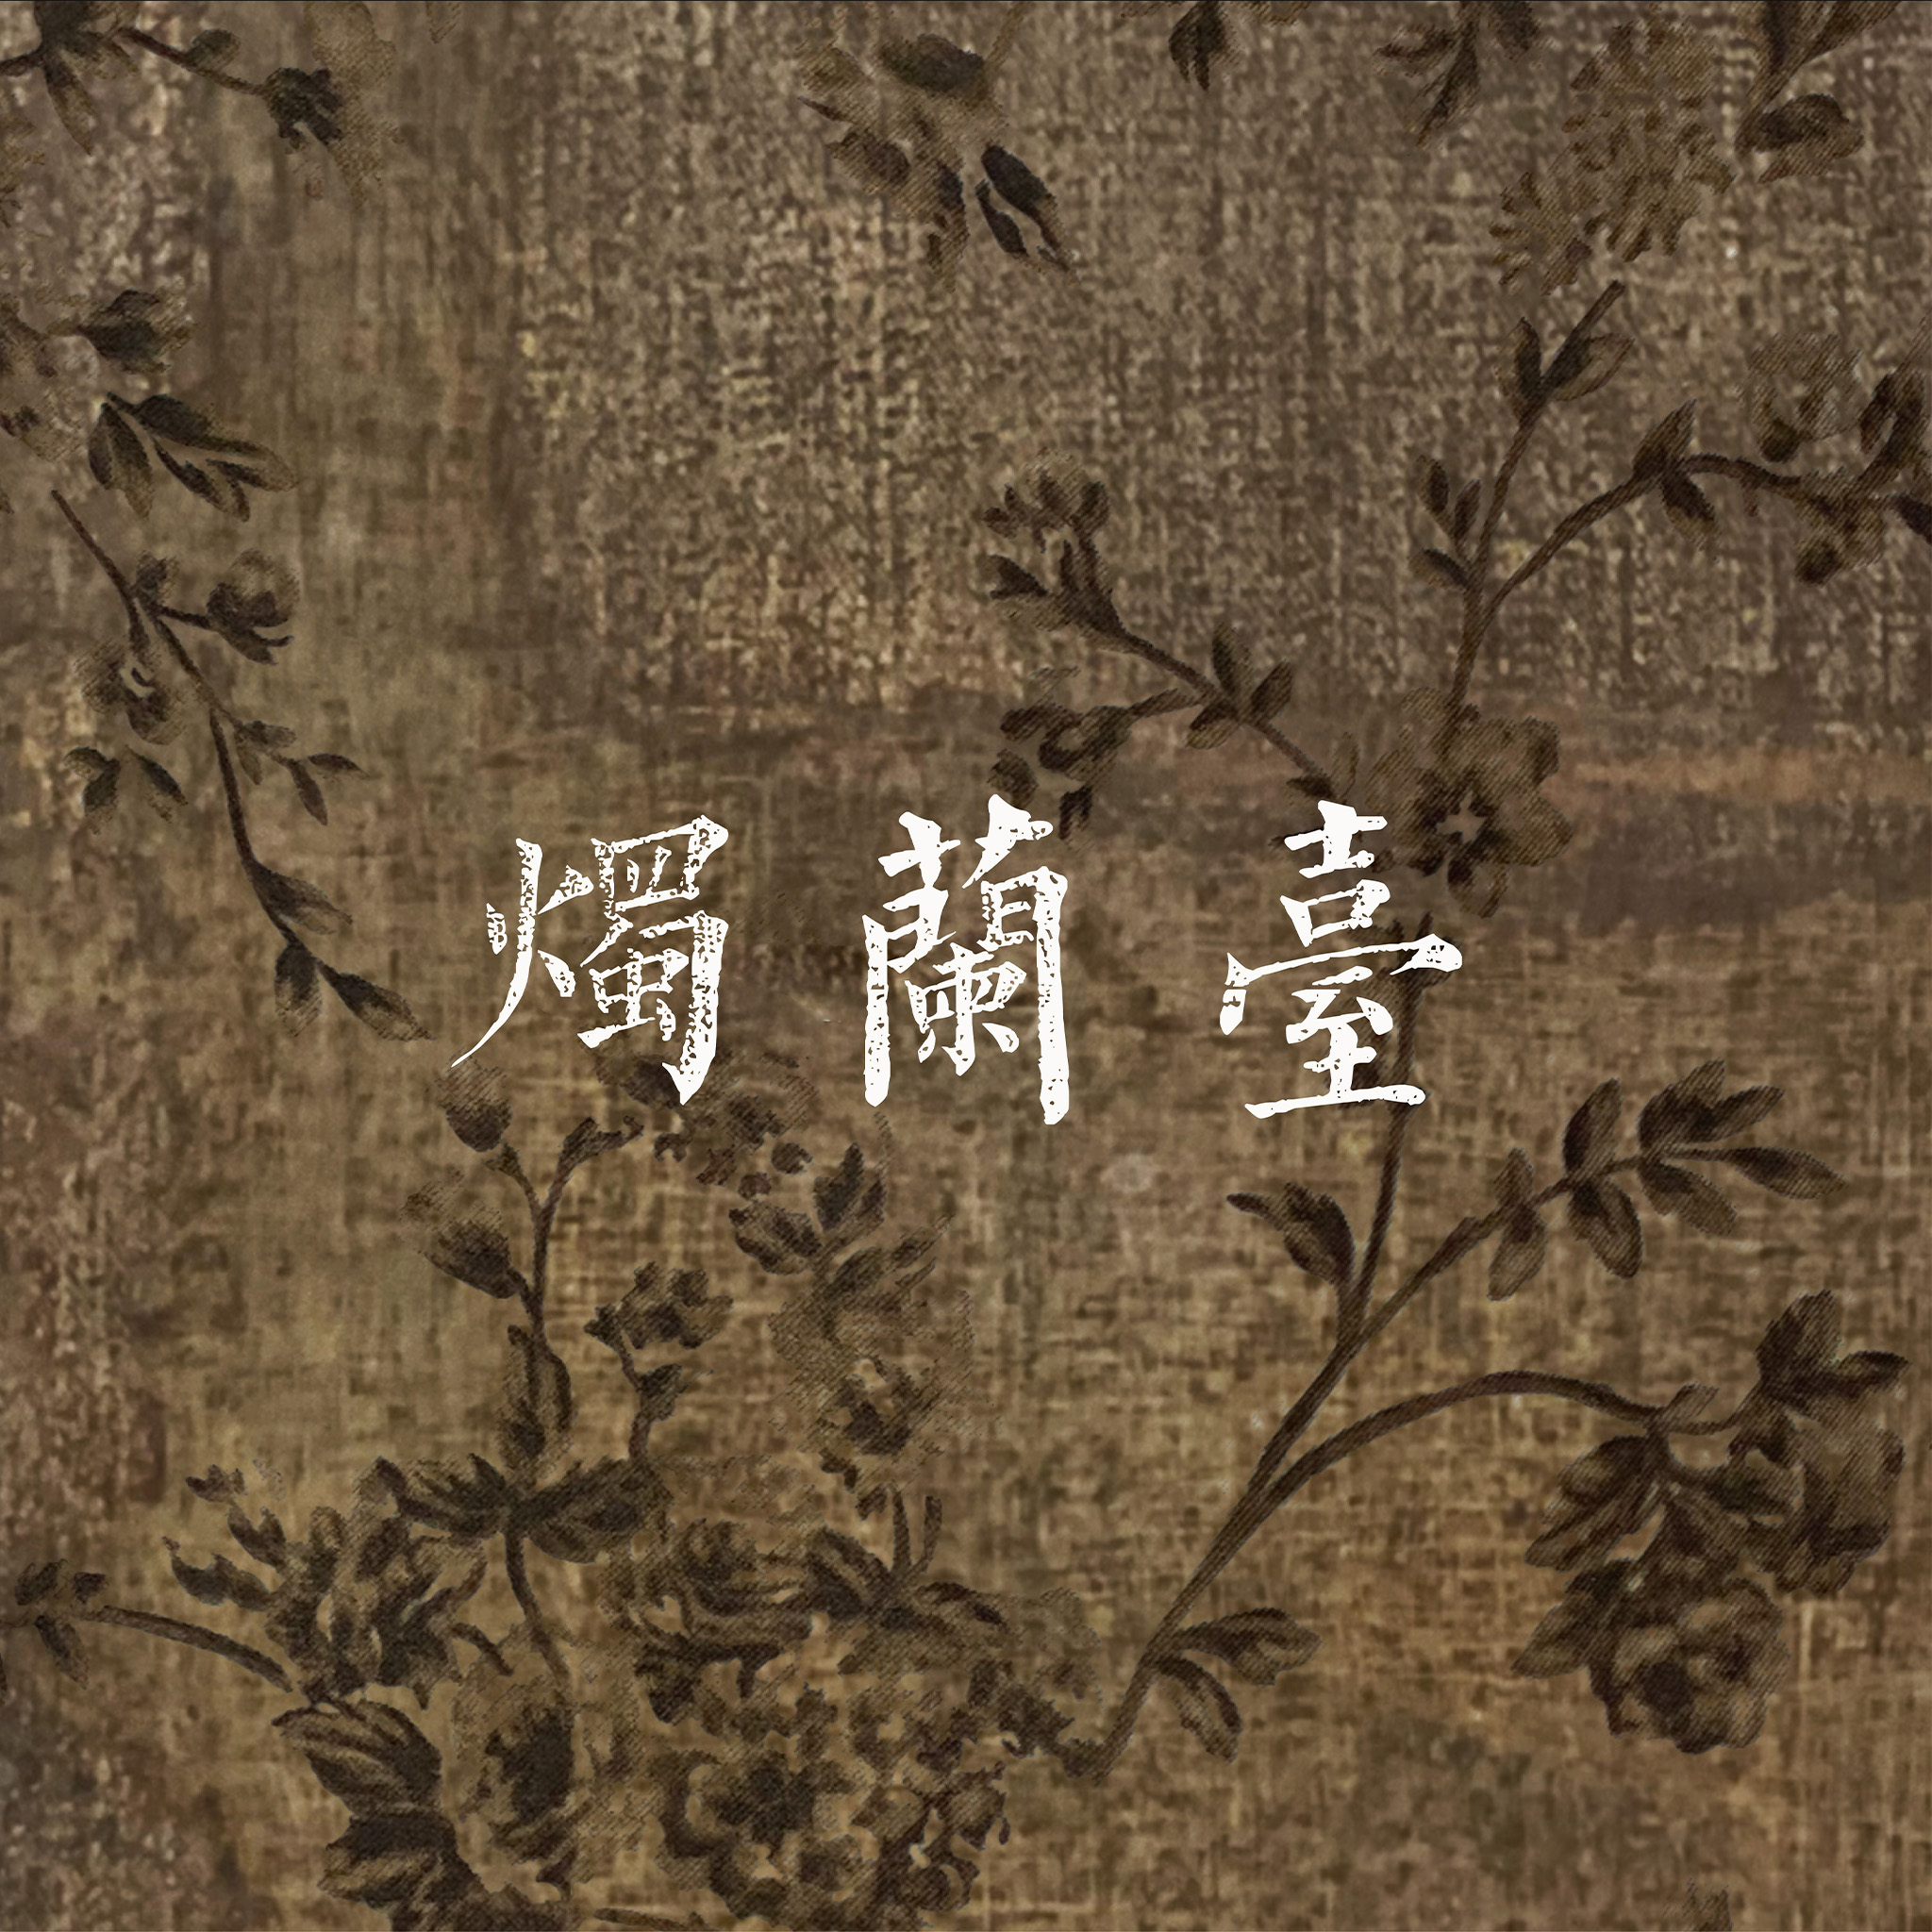 燭蘭臺